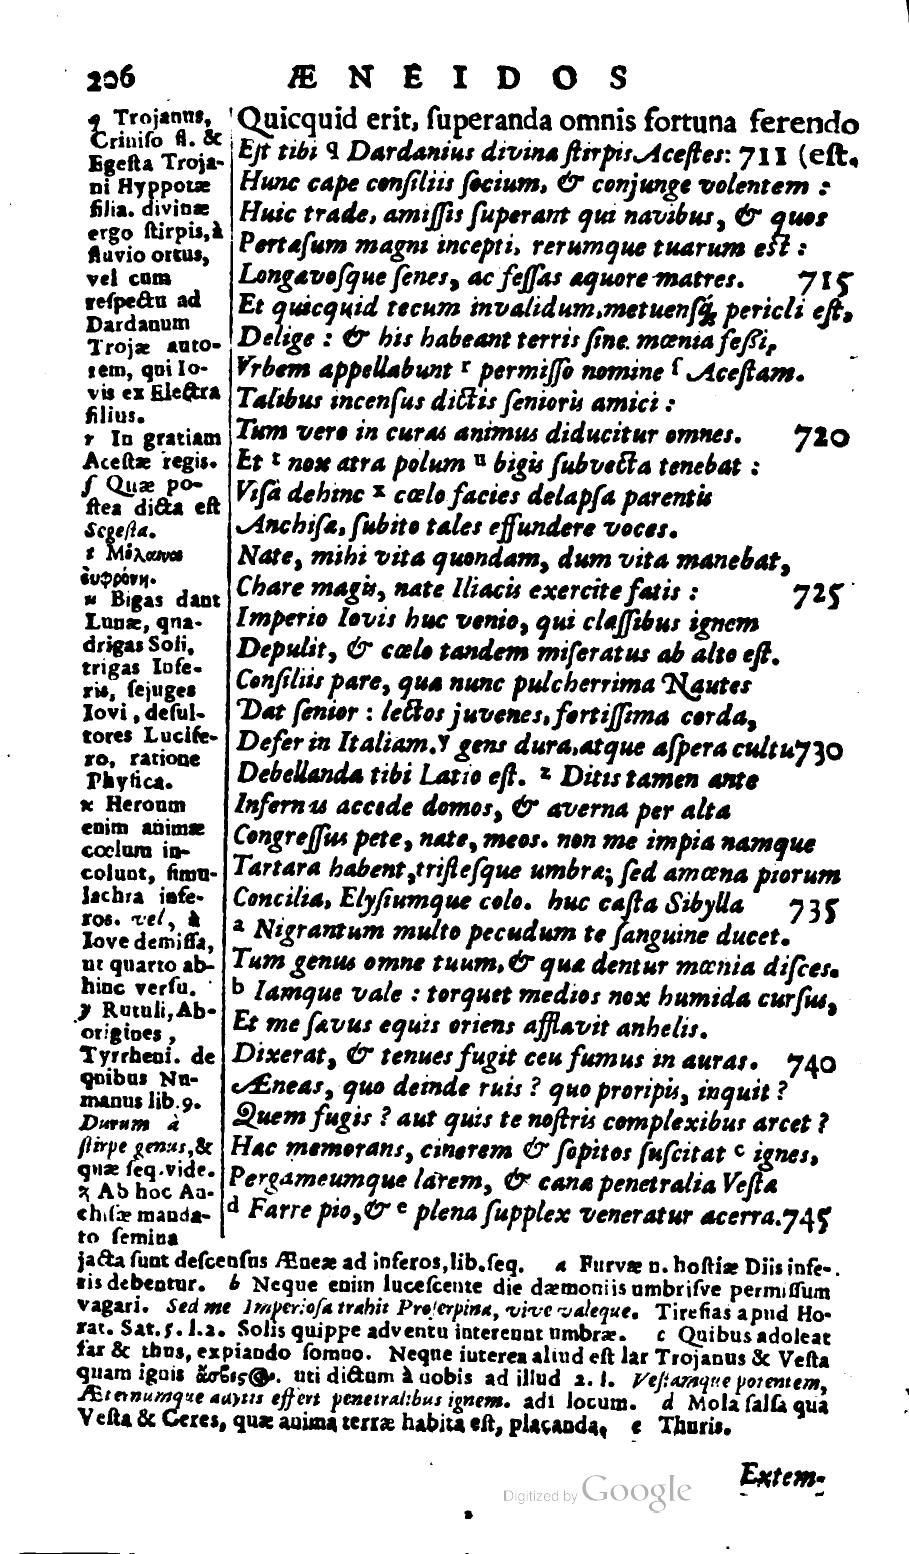 206 ÆNEIDOS
Quicquid erit, ſuperanda omnis fortuna ferendo
Eſt tibi q Dardanius divinæ ſtirpis Aceſtes: 711 (eſt.
Hunc cape conſiliis ſocium, & conjunge volentem :
Huic trade, amiſſis ſuperant qui navibus, & quos
Pertæſum magni incepti, rerumque tuarum eſt :
Longævoſque ſenes, ac feſſas æquore matres. 715
Et quicquid tecum invalidum, metuenſq; pericli eſt,
Delige : & his habeant terris ſine mœnia feſſi,
Vrbem appellabunt r permiſſo nomine ſ Aceſtam.
Talibus incenſus dictis ſenioris amici :
Tum vero in curas animus diducitur omnes. 720
Et t nox atra polum u bigis ſubvecta tenebat :
Viſa dehinc x cœlo facies delapſa parentis
Anchiſæ, ſubito tales effundere voces.
Nate, mihi vita quondam, dum vita manebat,
Chare magis, nate Iliacis exercite fatis : 725
Imperio Iovis huc venio, qui claſſibus ignem
Depulit, & cœlo tandem miſeratus ab alto eſt.
Conſiliis pare, quæ nunc pulcherrima Nautes
Dat ſenior : lectos juvenes, fortiſſima corda,
Defer in Italiam. y gens dura, atque aſpera cultu 730
Debellanda tibi Latio eſt. z Ditis tamen ante
Infernas accede domos, & averna per alta
Congreſſus pete, nate, meos. non me impia namque
Tartara habent, triſteſque umbræ; ſed amœna piorum
Concilia, Elyſiumque colo. huc caſta Sibylla 735
a Nigrantum multo pecudum te ſanguine ducet.
Tum genus omne tuum, & quæ dentur mœnia diſces.
b Iamque vale : torquet medios nox humida curſus,
Et me ſævus equis oriens afflavit anhelis.
Dixerat, & tenues fugit ceu fumus in auras. 740
Æneas, quo deinde ruis ? quo proripis, inquit ?
Quem fugis ? aut quis te noſtris complexibus arcet ?
Hæc memorans, cinerem & ſopitos ſuſcitat c ignes,
Pergameumque larem, & canæ penetralia Veſtæ
d Farre pio, & e plena ſupplex veneratur acerra. 745
q Trojanus,
Criniſo fl. &
Egeſta Troja-
ni Hyppotæ
filia. divinæ
ergo ſtirpis, à
fluvio ortus,
vel cum
reſpectu ad
Dardanum
Trojæ auto-
rem, qui Io-
vis ex Electra
filius.
r In gratiam
Aceſtæ regis.
ſ Quæ po-
ſtea dicta eſt
Segeſta.
t Μέλαινα
εὐφρόνη.
u Bigas dant
Lunæ, qua-
drigas Soli,
trigas Infe-
ris, ſejuges
Iovi, deſul-
tores Lucife-
ro, ratione
Phyſica.
x Heroum
enim animæ
cœlum in-
colunt, ſimu-
lachra infe-
ros. vel, à
Iove demiſſa,
ut quarto ab-
hinc verſu.
y Rutuli, Ab-
origines,
Tyrrheni. de
quibus Nu-
manus lib. 9.
Durum à
ſtirpe genus, &
quæ ſeq. vide.
z Ab hoc An-
chiſæ manda-
to ſemina
jacta ſunt deſcenſus Æneæ ad inferos, lib. ſeq. a Furvæ n. hoſtiæ Diis infe-
ris debentur. b Neque enim luceſcente die dæmoniis umbriſve permiſſum
vagari. Sed me Imperioſa trahit Proſerpina, vive valeque. Tireſias apud Ho-
rat. Sat. 5. l. 2. Solis quippe adventu intereunt umbræ. c Quibus adoleat
far & thus, expiando ſomno. Neque interea aliud eſt lar Trojanus & Veſta
quam ignis ἄσβεστος. uti dictum à nobis ad illud 2. l. Veſtamque potentem,
Æternumque adytis effert penetralibus ignem. adi locum. d Mola ſalſa qua
Veſta & Ceres, quæ anima terræ habita eſt, placanda, e Thuris.
Extem-
Digitized by Google